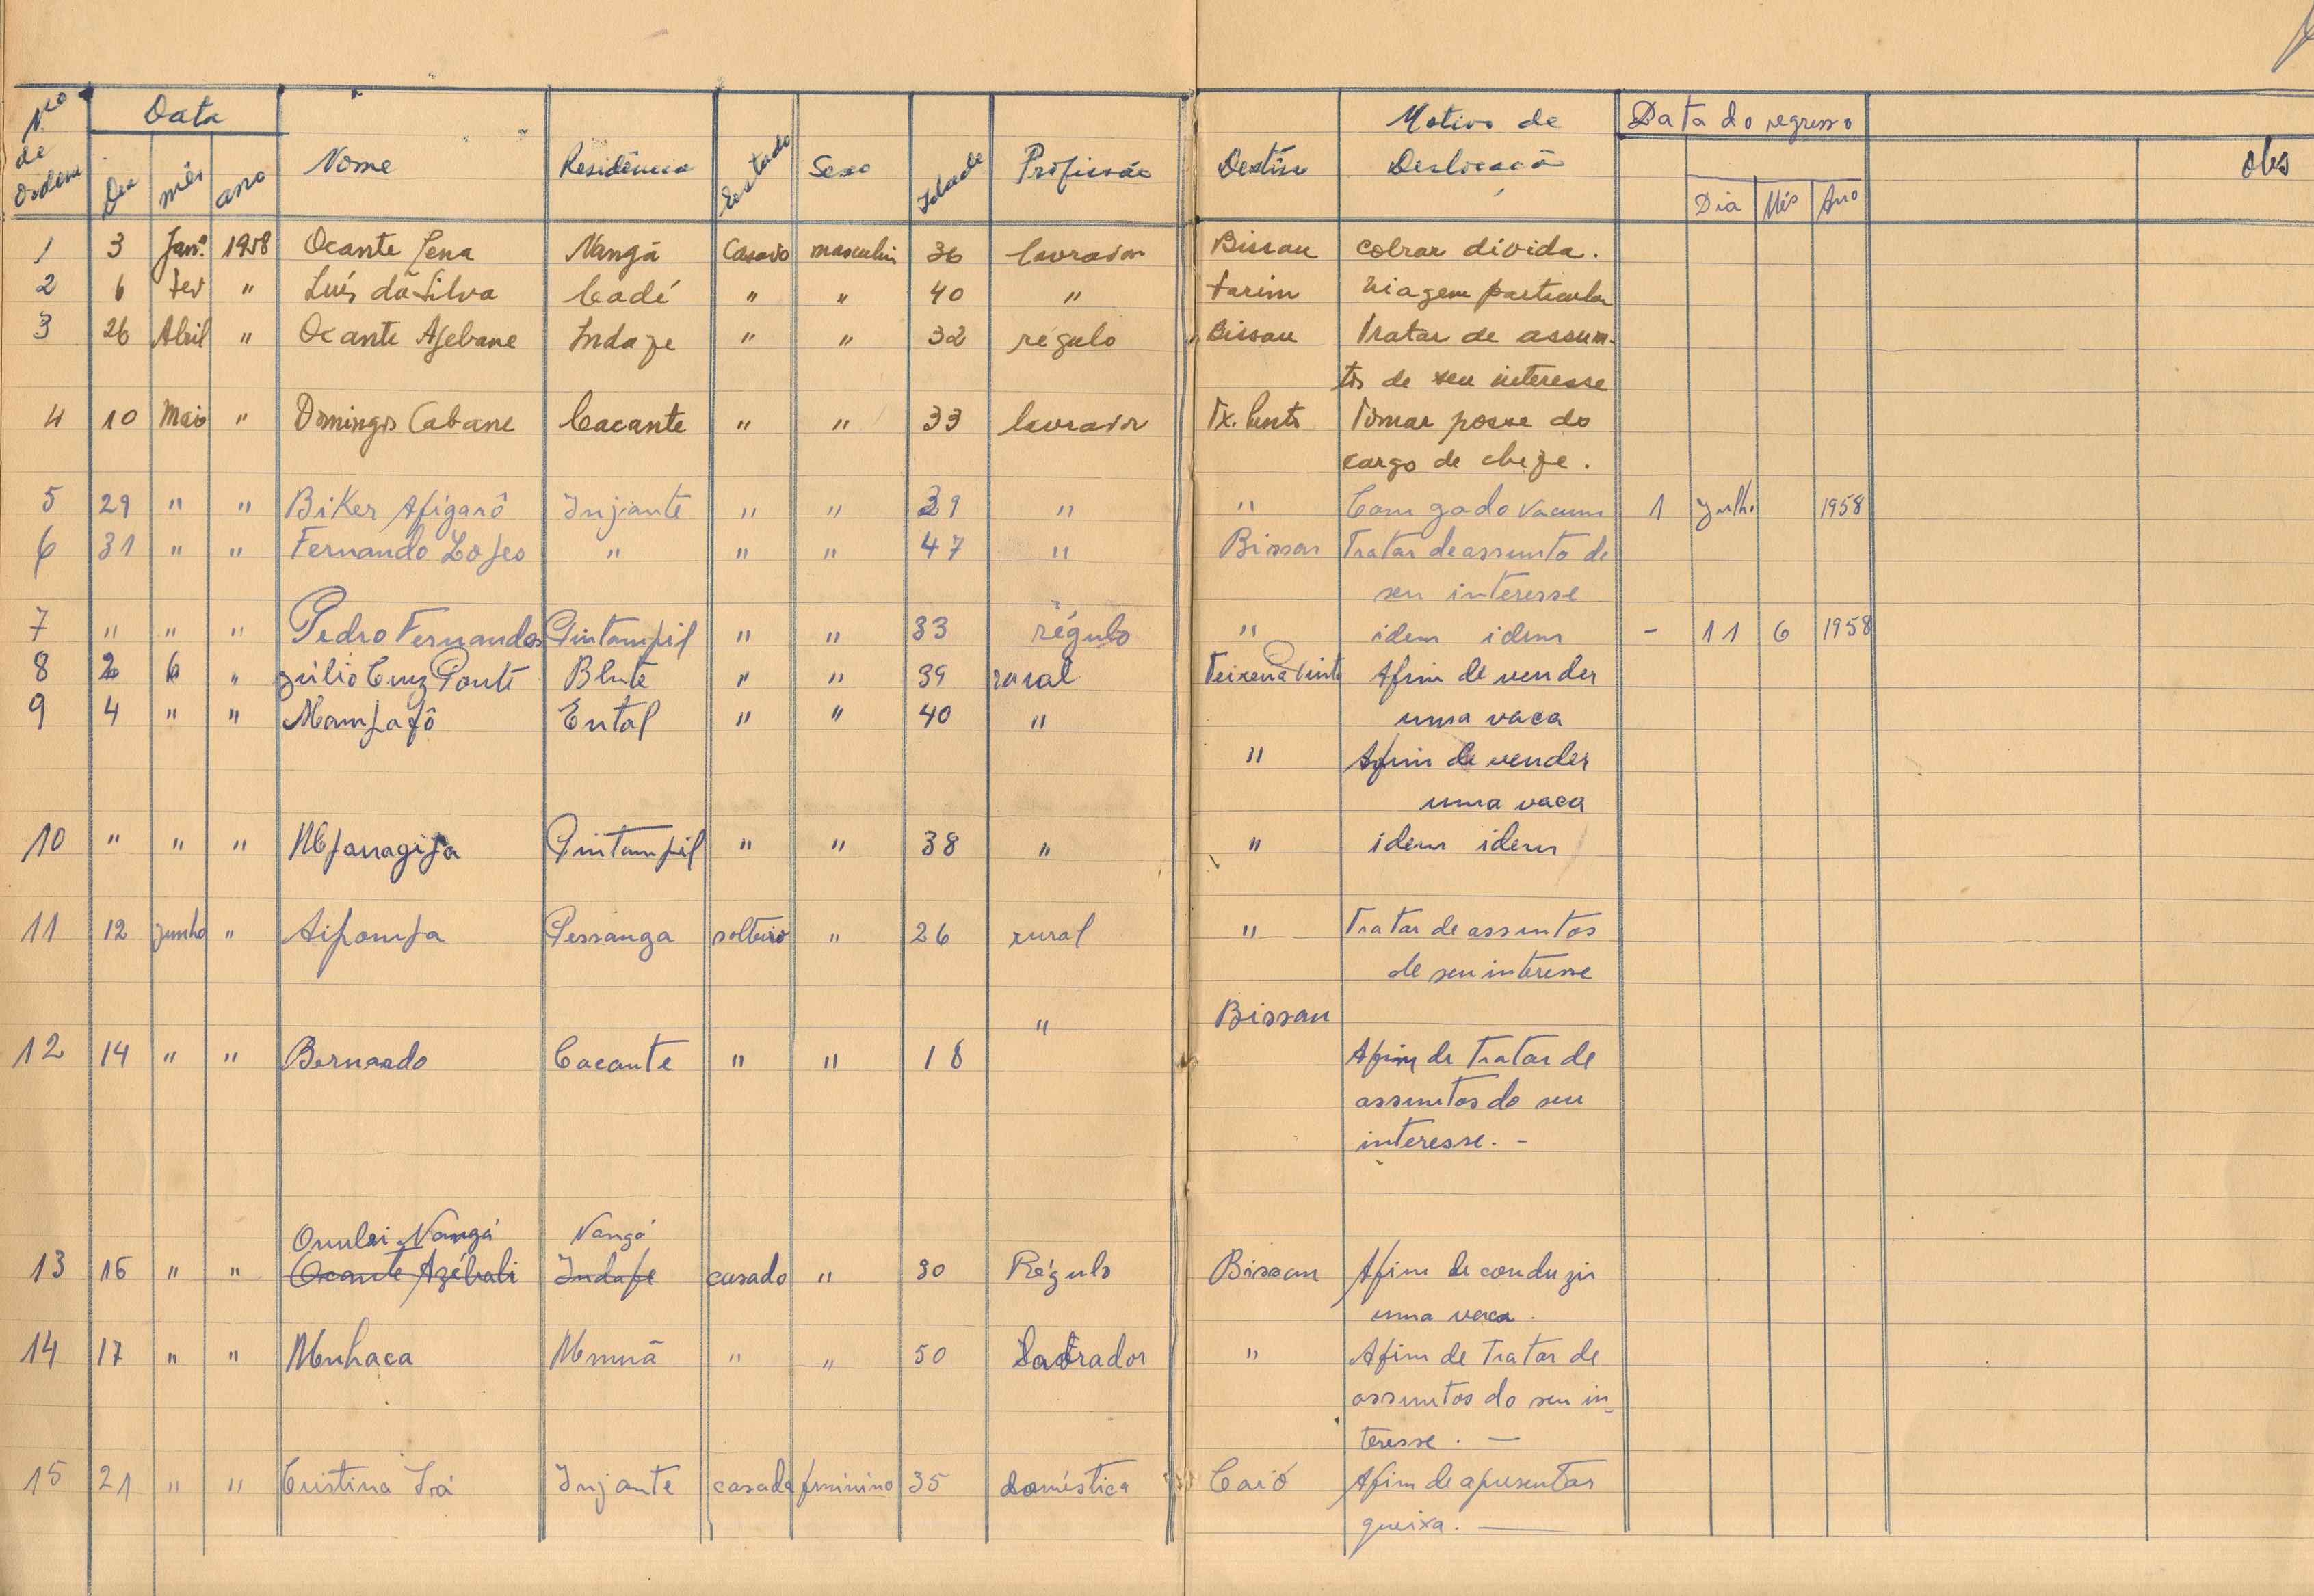 Nro de Ordem Data Nome Residência Estado Sexo Idade Profissão Destino Motivo de Deslocação Data do regresso obs
Dia mês ano Dia Mês Ano
1 3 Janº 1958 Ocante Jena Nangã Casado masculin 36 lavrador Bissau cobrar divida.
2 6 Fev " Luís da Silva Cadé " " 40 " Farim Viagem particular
3 26 Abril " Ocante Afebane Indafe " " 32 régulo Bissau Tratar de assum-
tos de seu interesse
4 10 Maio " Domingos Cabane Cacante " " 33 lavrador Tx. Pinto Tomar posse do
cargo de chefe.
5 29 " " Biker Afiganô Injante " " 39 " " Com gado vacum 1 Julho 1958
6 31 " " Fernando Lopes " " " 47 " Bissau Tratar de assunto de
seu interesse
7 " " " Pedro Fernandes Pintampil " " 33 régulo " idem idem - 11 6 1958
8 2 6 " Júlio Cruz Ponte Blute " " 39 rural Teixeira Pinto Afim de vender
9 4 " " Mampafô Ental " " 40 " uma vaca
" Afim de vender
uma vaca
10 " " " Mpanagipa Pintampil " " 38 " " idem idem
11 12 junho " Aipompa Pessanga solteiro " 26 rural " Tratar de assuntos
de seu interesse
" Bissau
12 14 " " Bernardo Cacante " " 18 Afim de Tratar de
assuntos do seu
interesse. -
Oumlei Nangá Nangá
13 16 " " Ocante Azébali Indafe casado " 30 Régulo Bissau Afim de conduzir
uma vaca.
14 17 " " Menhaca Mmuã " " 50 Lavrador " Afim de Tratar de
assuntos do seu in-
teresse. —
15 21 " " Cristina Irá Injante casada feminino 35 doméstica Caió Afim de apresentar
queixa. —